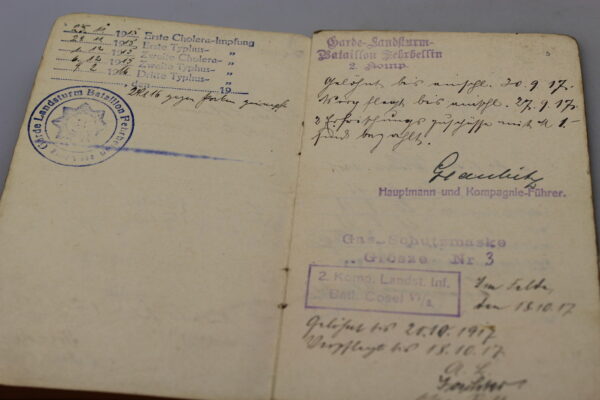 11 1915 Erste Cholera-Impfung
23. 11 1915 Erste Typhus- "
1. 12 1915 Zweite Cholera- "
6. 12 1915 Zweite Typhus- "
9. 2 1916 Dritte Typhus- "
19
16 gegen Pocken geimpft
Garde Landsturm Bataillon
Garde-Landsturm-
Bataillon Fehrbellin
2. Komp.
Gelöhnt bis einschl. 30.9.17.
Verpflegt bis einschl. 27.9.17.
2 Erfrischungszuschüsse mit M 1.-
sind bezahlt.
Hauptmann und Kompagnie-Führer.
Gas-Schutzmaske
Grösze Nr. 3
2. Komp. Landst. Inf.
Batl. Cosel VI/2.
Im Felde,
den 18.10.17
Gelöhnt bis 20.10.1917
Verpflegt bis 18.10.17.